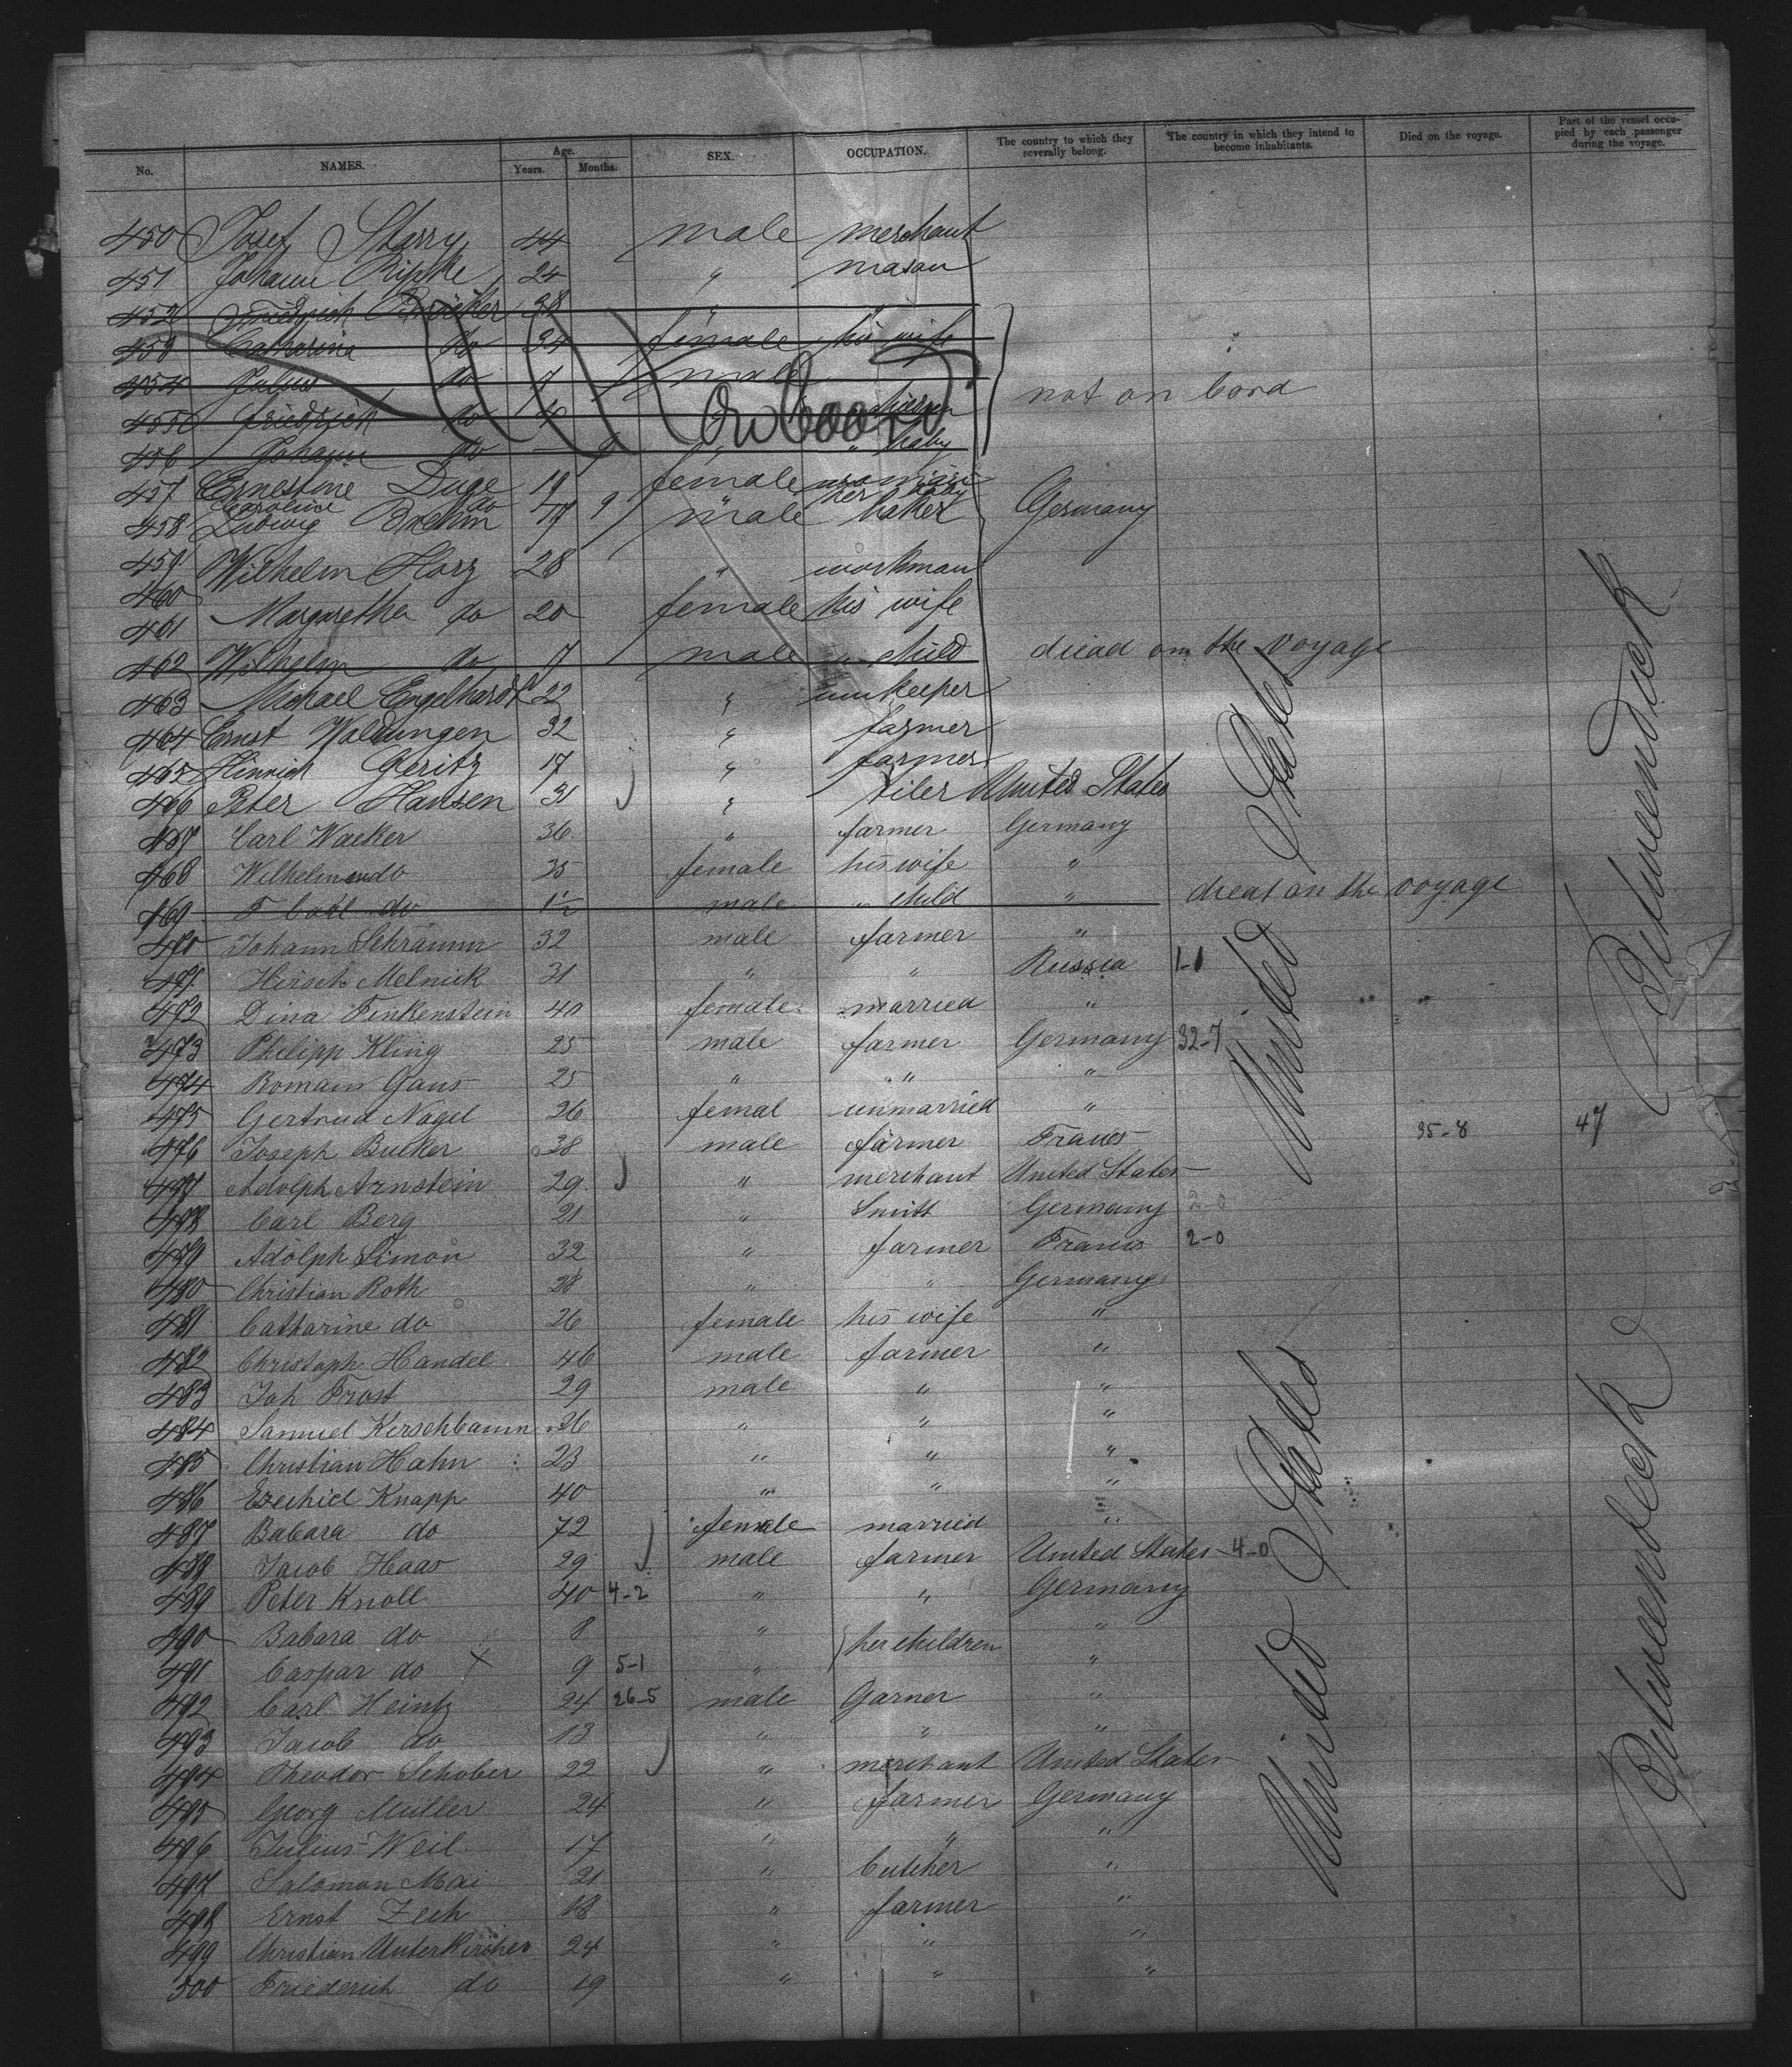 No. NAMES. Age. Years. Months. SEX. OCCUPATION. The country to which they severally belong. The country in which they intend to become inhabitants. Died on the voyage. Part of the vessel occupied by each passenger during the voyage.
450 Josef Starry 44 male merchant
451 Johann Ripke 24 " mason
452 Friedrich Bröcker 38 " "
453 Catharina do 34 female his wife
454 Julius do 7 male
not on bord
455 Friedrich do 4 "
on board
456 Johann do — 9 " " baby
457 Ernestine Duge 19 female
Caroline do 9 " her baby
458 Ludwig Brehm 17 male baker Germany
459 Wilhelm Horz 28 " workman
460
461 Margaretha do 20 female his wife
462 Wilhelm do 7 male " child diead on the voyage
463 Michael Engelhardt 22 " innkeeper
464 Ernst Waldungen 32 " farmer
465 Hinrich Geritz 17 " farmer
466 Peter Hansen 31 " tiler United States
467 Carl Wacker 36 " farmer Germany
468 Wilhelm do 35 female his wife "
469 F Carl do 1½ male " child " dieat on the voyage
470 Johann Schramm 32 male farmer "
471 Hirsch Melnick 31 " " Russia 1-1
472 Dina Finkenstein 40 female married "
473 Philipp Kling 25 male farmer Germany 32-7
474 Romain Gaus 25 " " "
475 Gertrud Nagel 26 femal unmarried "
476 Joseph Bucker 28 male farmer 35-8 47
477 Adolph Arnstein 29 " merchant United States
478 Carl Berg 21 " Smitt Germany 2-0
479 Adolph Simon 32 " farmer 2-0
480 Christian Roth 28 " " Germany
481 Catharine do 26 female his wife "
482 Christoph Handel 46 male farmer "
483 Joh Frost 29 male " "
484 Samuel Kerschbaum 26 " " "
485 Christian Hahn 23 " " "
486 Ezechiel Knapp 40 " " "
487 Babara do 72 female married "
488 Jacob Haas 29 male farmer United States 4-0
489 Peter Knoll 40 4-2 " " Germany
490 Babara do 8 " her children "
491 Caspar do X 9 5-1 " "
492 Carl Heintz 24 26-5 male Garner "
493 Jacob do 13 " " "
494 Theodor Schober 22 " merchant United States
495 Georg Müller 24 " farmer Germany
496 Julius Weil 17 " " "
497 Salomon Mai 21 " butcher "
498 Ernst Zech 18 " farmer "
499 Christian Unterkircher 24 " " "
500 Friederich do 19 " " "
United States
United States